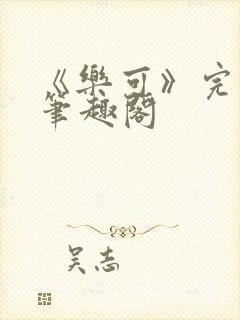 《樂可》完
筆趣閣
吴志